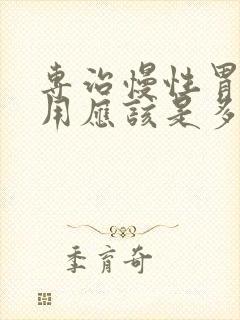 專治慢性胃
用應該是多
季育奇